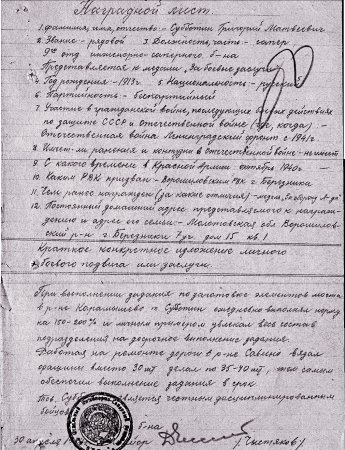 Наградной лист.
1. Фамилия, имя, отчество - Субботин Григорий Матвеевич
2. Звание - рядовой 3. Должность, часть - сапер
отд. инженерно-саперного б-на
Представляется к медали „За боевые заслуги
4. Год рождения - 1913 г. 5. Национальность - русский
6. Партийность - беспартийный
7. Участие в гражданской войне, последующих боевых действиях
по защите СССР и отечественной войне (где, когда)
Отечественная война Ленинградский фронт с 1941 г.
8. Имеет-ли ранения и контузии в отечественной войне - не имеет
9. С какого времени в Красной Армии октябрь 1940
10. Каким РВК призван - Ворошиловским РВК г. Березники
11. Чем ранее награжден (за какие отличия) - медаль „За оборону Л-да"
12. Постоянный домашний адрес представляемого к награж-
дению и адрес его семьи - Молотовская обл. Ворошилов-
ский р-н г. Березники 7 дом 15 кв. 1
Краткое конкретное изложение личного
боевого подвига или заслуги.
При выполнении задания по заготовке элементов моста
в р-не т. Субботин ежедневно выполнял норму
на 150-200% и личным примером увлекал весь состав
подразделения на досрочное выполнение задания.
Работая на ремонте дороги в р-не Савино вязал
фашины вместо 30 шт делал по 35-40 шт, тем самым
обеспечил выполнение задания в срок
Тов. является честным дисциплинированным
бойцом
б-на
30 апреля
(Чистяков)